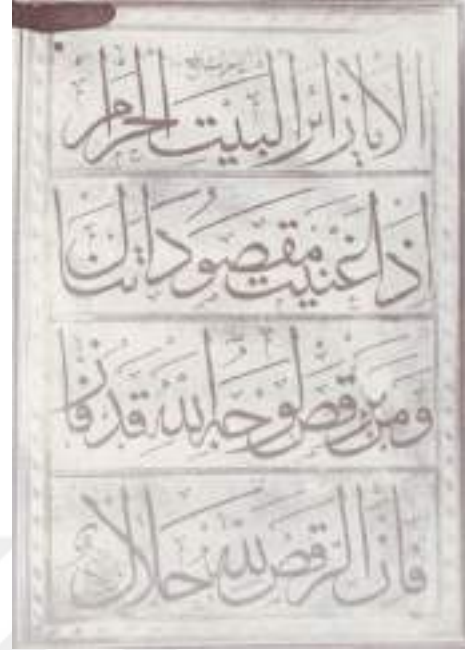 الا يا زائر البيت الحرام
اذا غنيت مقصودا تنال
ومن يرقص لوجه الله قد فاز
فان الرقص لله حلال